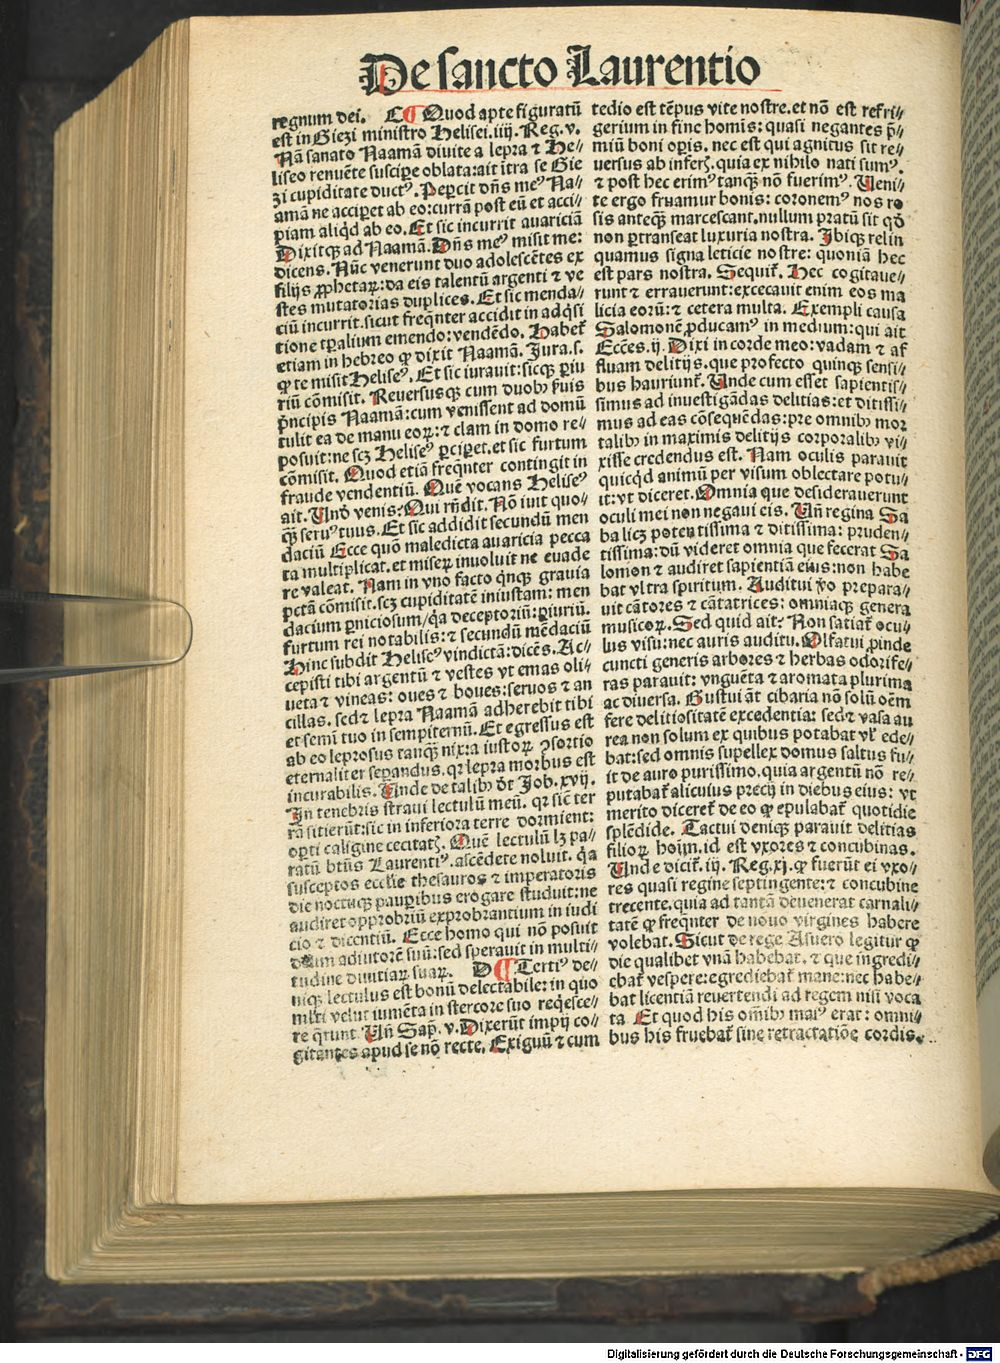 De sancto Laurentio
regnum dei. C ¶ Quod apte figuratū
est in Giezi ministro Helisei.iiij.Reg.v.
Nā sanato Naamā diuite a lepra ⁊ He⸗
liseo renuēte suscipere oblata:ait ītra se Gie
zi cupiditate ductꝰ. Pepercit dn̄s meꝰ Na⸗
amā ne acciperet ab eo:currā post eū et acci⸗
piam aliqd ab eo. Et sic incurrit auariciā
Dixitqꝫ ad Naamā. Dn̄s meꝰ misit me:
dicens. Nūc venerunt duo adolescētes ex
filijs ꝓphetaꝝ:da eis talentū argenti ⁊ ve
stes mutatorias duplices. Et sic menda⸗
ciū incurrit.sicut freqn̄ter accidit in adqsi
tione tꝑalium emendo:vendēdo. Habet̄
etiam in hebreo ꝙ dixit Naamā. Jura.s.
ꝙ te misit Heliseꝰ. Et sic iurauit:sicqꝫ ꝑiu
riū cōmisit. Reuersusqꝫ cum duobꝫ ẜuis
pn̄cipis Naamā:cum venissent ad domū
tulit ea de manu eoꝝ:⁊ clam in domo re⸗
posuit:ne scꝫ Heliseꝰ ꝑciperet.et sic furtum
cōmisit. Quod etiā freqn̄ter contingit in
fraude vendentiū. Quē vocans Heliseꝰ
ait. Vnđ venis? Qui rn̄dit. Nō iuit quo⸗
qꝫ seruꝰ tuus. Et sic addidit secundū men
daciū Ecce quō maledicta auaricia pecca
ta multiplicat.et miseꝝ inuoluit ne euade
re valeat. Nam in vno facto qn̄qꝫ grauia
pctā cōmisit.scꝫ cupiditatē iniustam: men
dacium ꝑniciosum/qa deceptoriū:ꝑiuriū.
furtum rei notabilis:⁊ secundū mēdaciū
Hinc subdit Heliseꝰ vindictā:dicēs. Ac⸗
cepisti tibi argentū ⁊ vestes vt emas oli⸗
ueta ⁊ vineas: oues ⁊ boues:seruos ⁊ an
cillas. sed ⁊ lepra Naamā adherebit tibi
et semī tuo in sempiternū. Et egressus est
ab eo leprosus tanqꝫ nix:a iustoꝝ ꝯsortio
eternaliter seꝑandus.qꝛ lepra morbus est
incurabilis. Vnde de talibꝫ đt Job.xvij.
In tenebris straui lectulū meū. qꝛ sic̄ ter
rā sitierūt:sic in inferiora terre dormient:
oꝑti caligine cecitatꝭ. Quē lectulū lꝫ pa⸗
ratū btūs Laurentiꝰ.ascēdete noluit. qa
susceptos ecclīe thesauros ⁊ imperatoris
die noctuqꝫ pauperibus erogare studuit:ne
audiret opprobriū exprobrantium in iudi
cio ⁊ dicentiū. Ecce homo qui nō posuit
deum adiutorē suū:sed sperauit in multi⸗
tudine diuitiaꝝ suaꝝ. D ¶ Tertiꝰ de⸗
niqꝫ lectulus est bonū delectabile: in quo
ml̄ti velut iumēta in stercore suo reqesce⸗
re qrunt Vn̄ Sap. v. Dixerūt impij co⸗
gitantes apud se nō recte. Exiguū ⁊ cum
tedio est tēpus vite nostre.et nō est refri⸗
gerium in fine homīs: quasi negantes p̄⸗
miū boni oꝑis. nec est qui agnitus sit re⸗
uersus ab inferꝭ. quia ex nihilo nati sumꝰ.
⁊ post hec erimꝰ tanqꝫ nō fuerimꝰ. Ueni⸗
te ergo fruamur bonis: coronemꝰ nos ro
sis anteqꝫ marcescant.nullum pratū sit qđ
non ꝑtranseat luxuria nostra. Ibiqꝫ relin
quamus signa leticie nostre: quoniā hec
est pars nostra. Sequit̄. Hec cogitaue⸗
runt ⁊ errauerunt:excecauit enim eos ma
licia eorū: ⁊ cetera multa. Exempli causa
Salomonē ꝓducamꝰ in medium:qui ait
Ecces. ij. Dixi in corde meo: vadam ⁊ af
fluam delitijs.que profecto quinqꝫ sensi⸗
bus hauriunt̄. Vnde cum esset sapientis⸗
simus ad inuestigādas delitias: et ditissi⸗
mus ad eas cōsequēdas: pre omnibꝫ mor
talibꝫ in maximis delitijs corporalibꝫ vi⸗
xisse credendus est. Nam oculis parauit
quicqd animū per visum oblectare potu⸗
it:vt diceret. Omnia que desiderauerunt
oculi mei non negaui eis. Vn̄ regina Sa
ba licꝫ potentissima ⁊ ditissima: pruden⸗
tissima: dū videret omnia que fecerat Sa
lomon ⁊ audiret sapientiā eius: non habe
bat vltra spiritum. Auditui v̾o prepara⸗
uit cātores ⁊ cātatrices: omniaqꝫ genera
musicoꝝ. Sed quid ait? Non satiat̄ ocu⸗
lus visu: nec auris auditu. Olfatui ꝓinde
cuncti generis arbores ⁊ herbas odorife⸗
ras parauit: vnguēta ⁊ aromata plurima
ac diuersa. Gustui āt cibaria nō solū oēm
fere delitiositatē excedentia: sed ⁊ vasa au
rea non solum ex quibus potabat vl̄ ede⸗
bat: sed omnis supellex domus saltus fu⸗
it de auro purissimo.quia argentū nō re⸗
putabat̄ alicuius precij in diebus eius: vt
merito diceret̄ de eo ꝙ epulabat̄ quotidie
splēdide. Tactui deniqꝫ parauit delitias
filioꝝ hoīm.id est vxores ⁊ concubinas.
Vnde dicit̄. iij. Reg.xj.ꝙ fuerūt ei vxo⸗
res quasi regine septingente: ⁊ concubine
trecente.quia ad tantā deuenerat carnali⸗
tatē ꝙ freqn̄ter de nouo virgines habere
volebat. Sicut de rege Asuero legitur ꝙ
die qualibet vnā habebat. ⁊ que ingredi⸗
ebat̄ vespere: egrediebat̄ mane: nec habe⸗
bat licentiā reuertendi ad regem nisi voca
ta Et quod his oībꝫ maiꝰ erat: omni⸗
bus his fruebat̄ sine retractatiōe cordis.
Digitalisierung gefördert durch die Deutsche Forschungsgemeinschaft - DFG